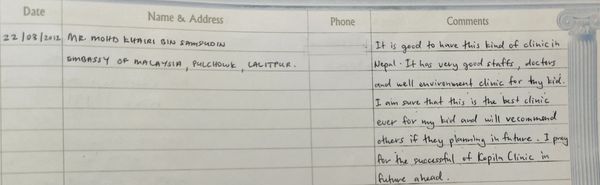 Date Name & Address Phone Comments
22/08/2012 MR MOHD KHAIRI BIN SAMSUDIN
EMBASSY OF MALAYSIA, PULCHOWK, LALITPUR.
It is good to have this kind of clinic in
Nepal. It has very good staffs, doctors
and well environment clinic for my kid.
I am sure that this is the best clinic
ever for my kid and will recommend
others if they planning in future. I pray
for the successful of Kapila Clinic in
future ahead.